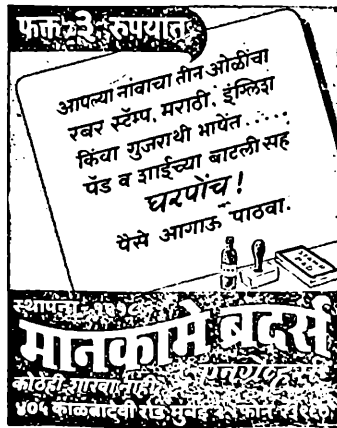 फक्त ३ रुपयात
आपल्या नांवाचा तीन ओळींचा
रबर स्टॅम्प, मराठी, इंग्लिश
किंवा गुजराथी भाषेंत.....
पॅड व शाईच्या बाटली सह
घरपोंच!
पैसे आगाऊ पाठवा.
स्थापना
मानकामे ब्रदर्स
एनग्रेव्हर्स
कोठेही शाखा नाही
४०५ काळबादेवी रोड मुंबई २ फोन